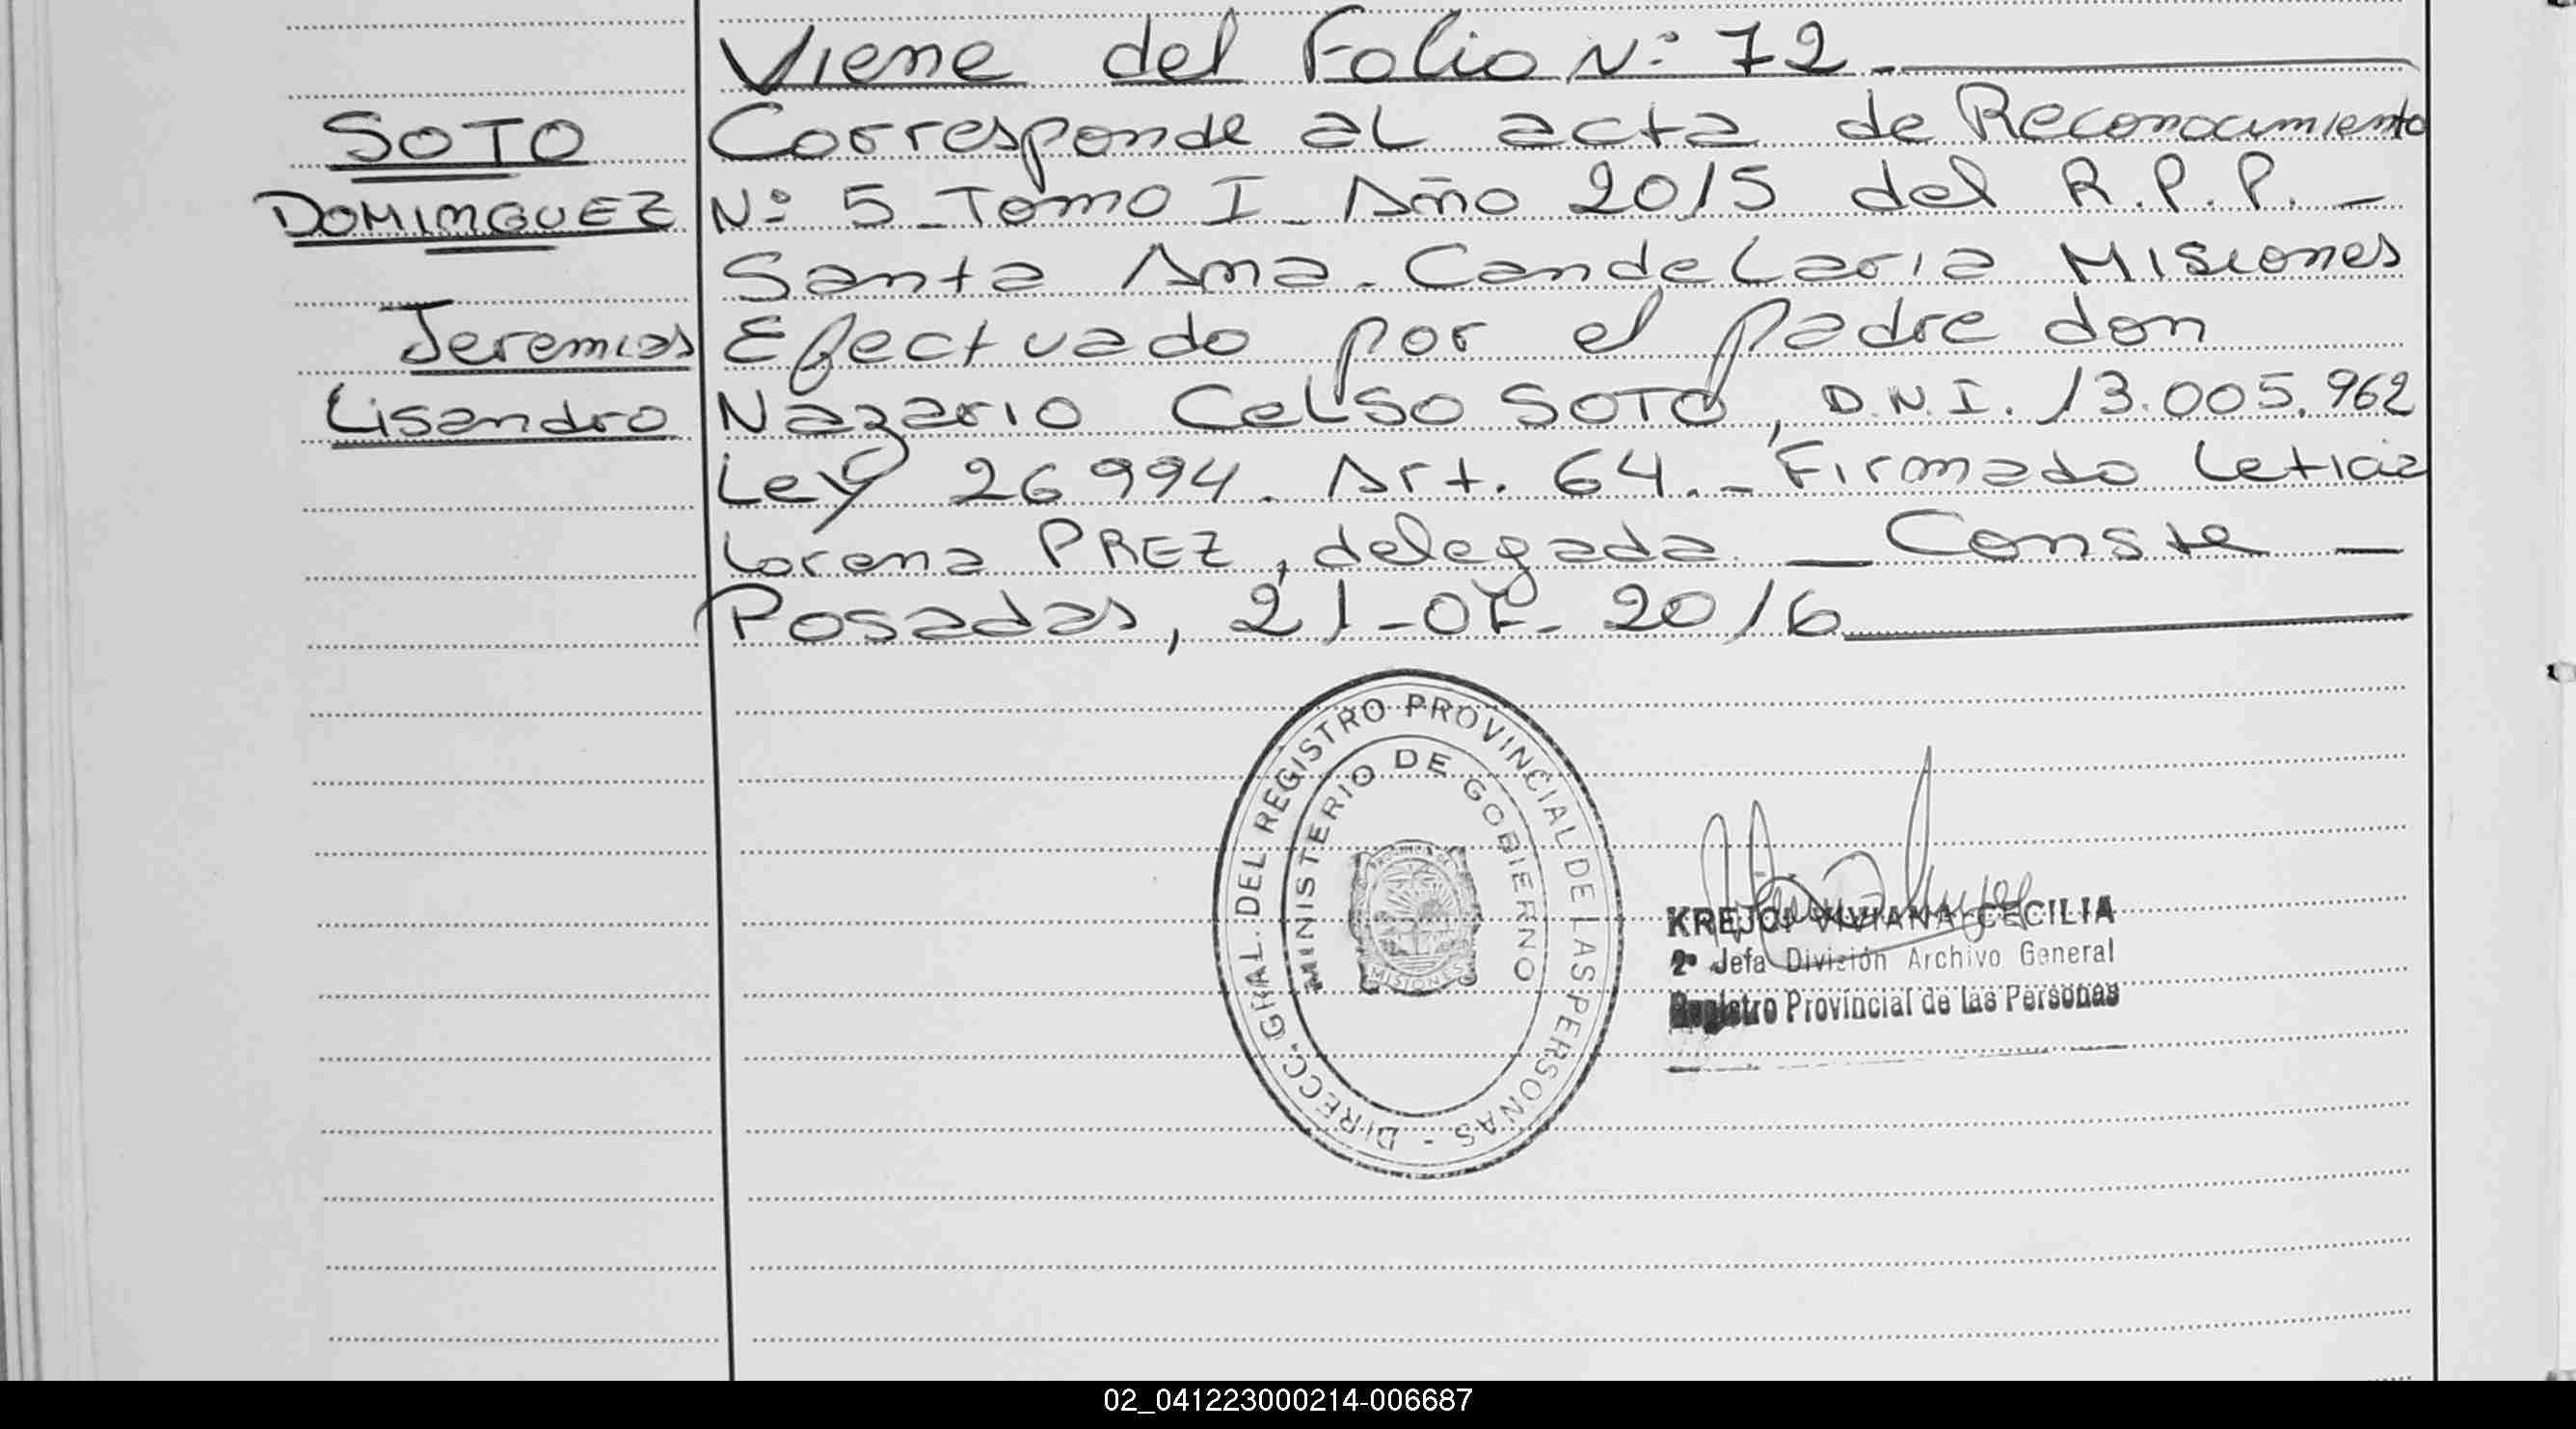 Viene del Folio N: 72.-
SOTO
DOMINGUEZ
Jeremias
Lisandro
Corresponde al acta de Reconocimiento
N: 5 - Tomo I - Año 2015 del R.P.P. -
Santa Ana - Candelaria Misiones
Efectuado por el padre don
Nazario Celso SOTO, D.N.I. 13.005.962
Ley 26994. Art. 64. - Firmado Leticia
Lorena PREZ, delegada. - Conste -
Posadas, 21-07-2016
DIRECC. GRAL. DEL REGISTRO PROVINCIAL DE LAS PERSONAS -
MINISTERIO DE GOBIERNO
PROVINCIA DE
MISIONES
KREJCI VIVIANA CECILIA
2º Jefa División Archivo General
Registro Provincial de las Personas
02_041223000214-006687